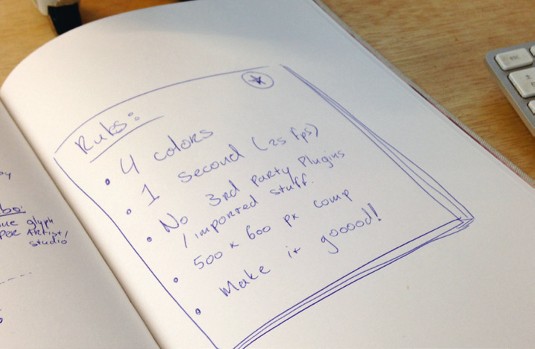 Rules:
• 4 colors
• 1 second (25 fps)
• No 3rd Party Plugins
/ imported stuff.
• 500 x 600 px comp
• Make it gooood!
glyph
Artist/
studio